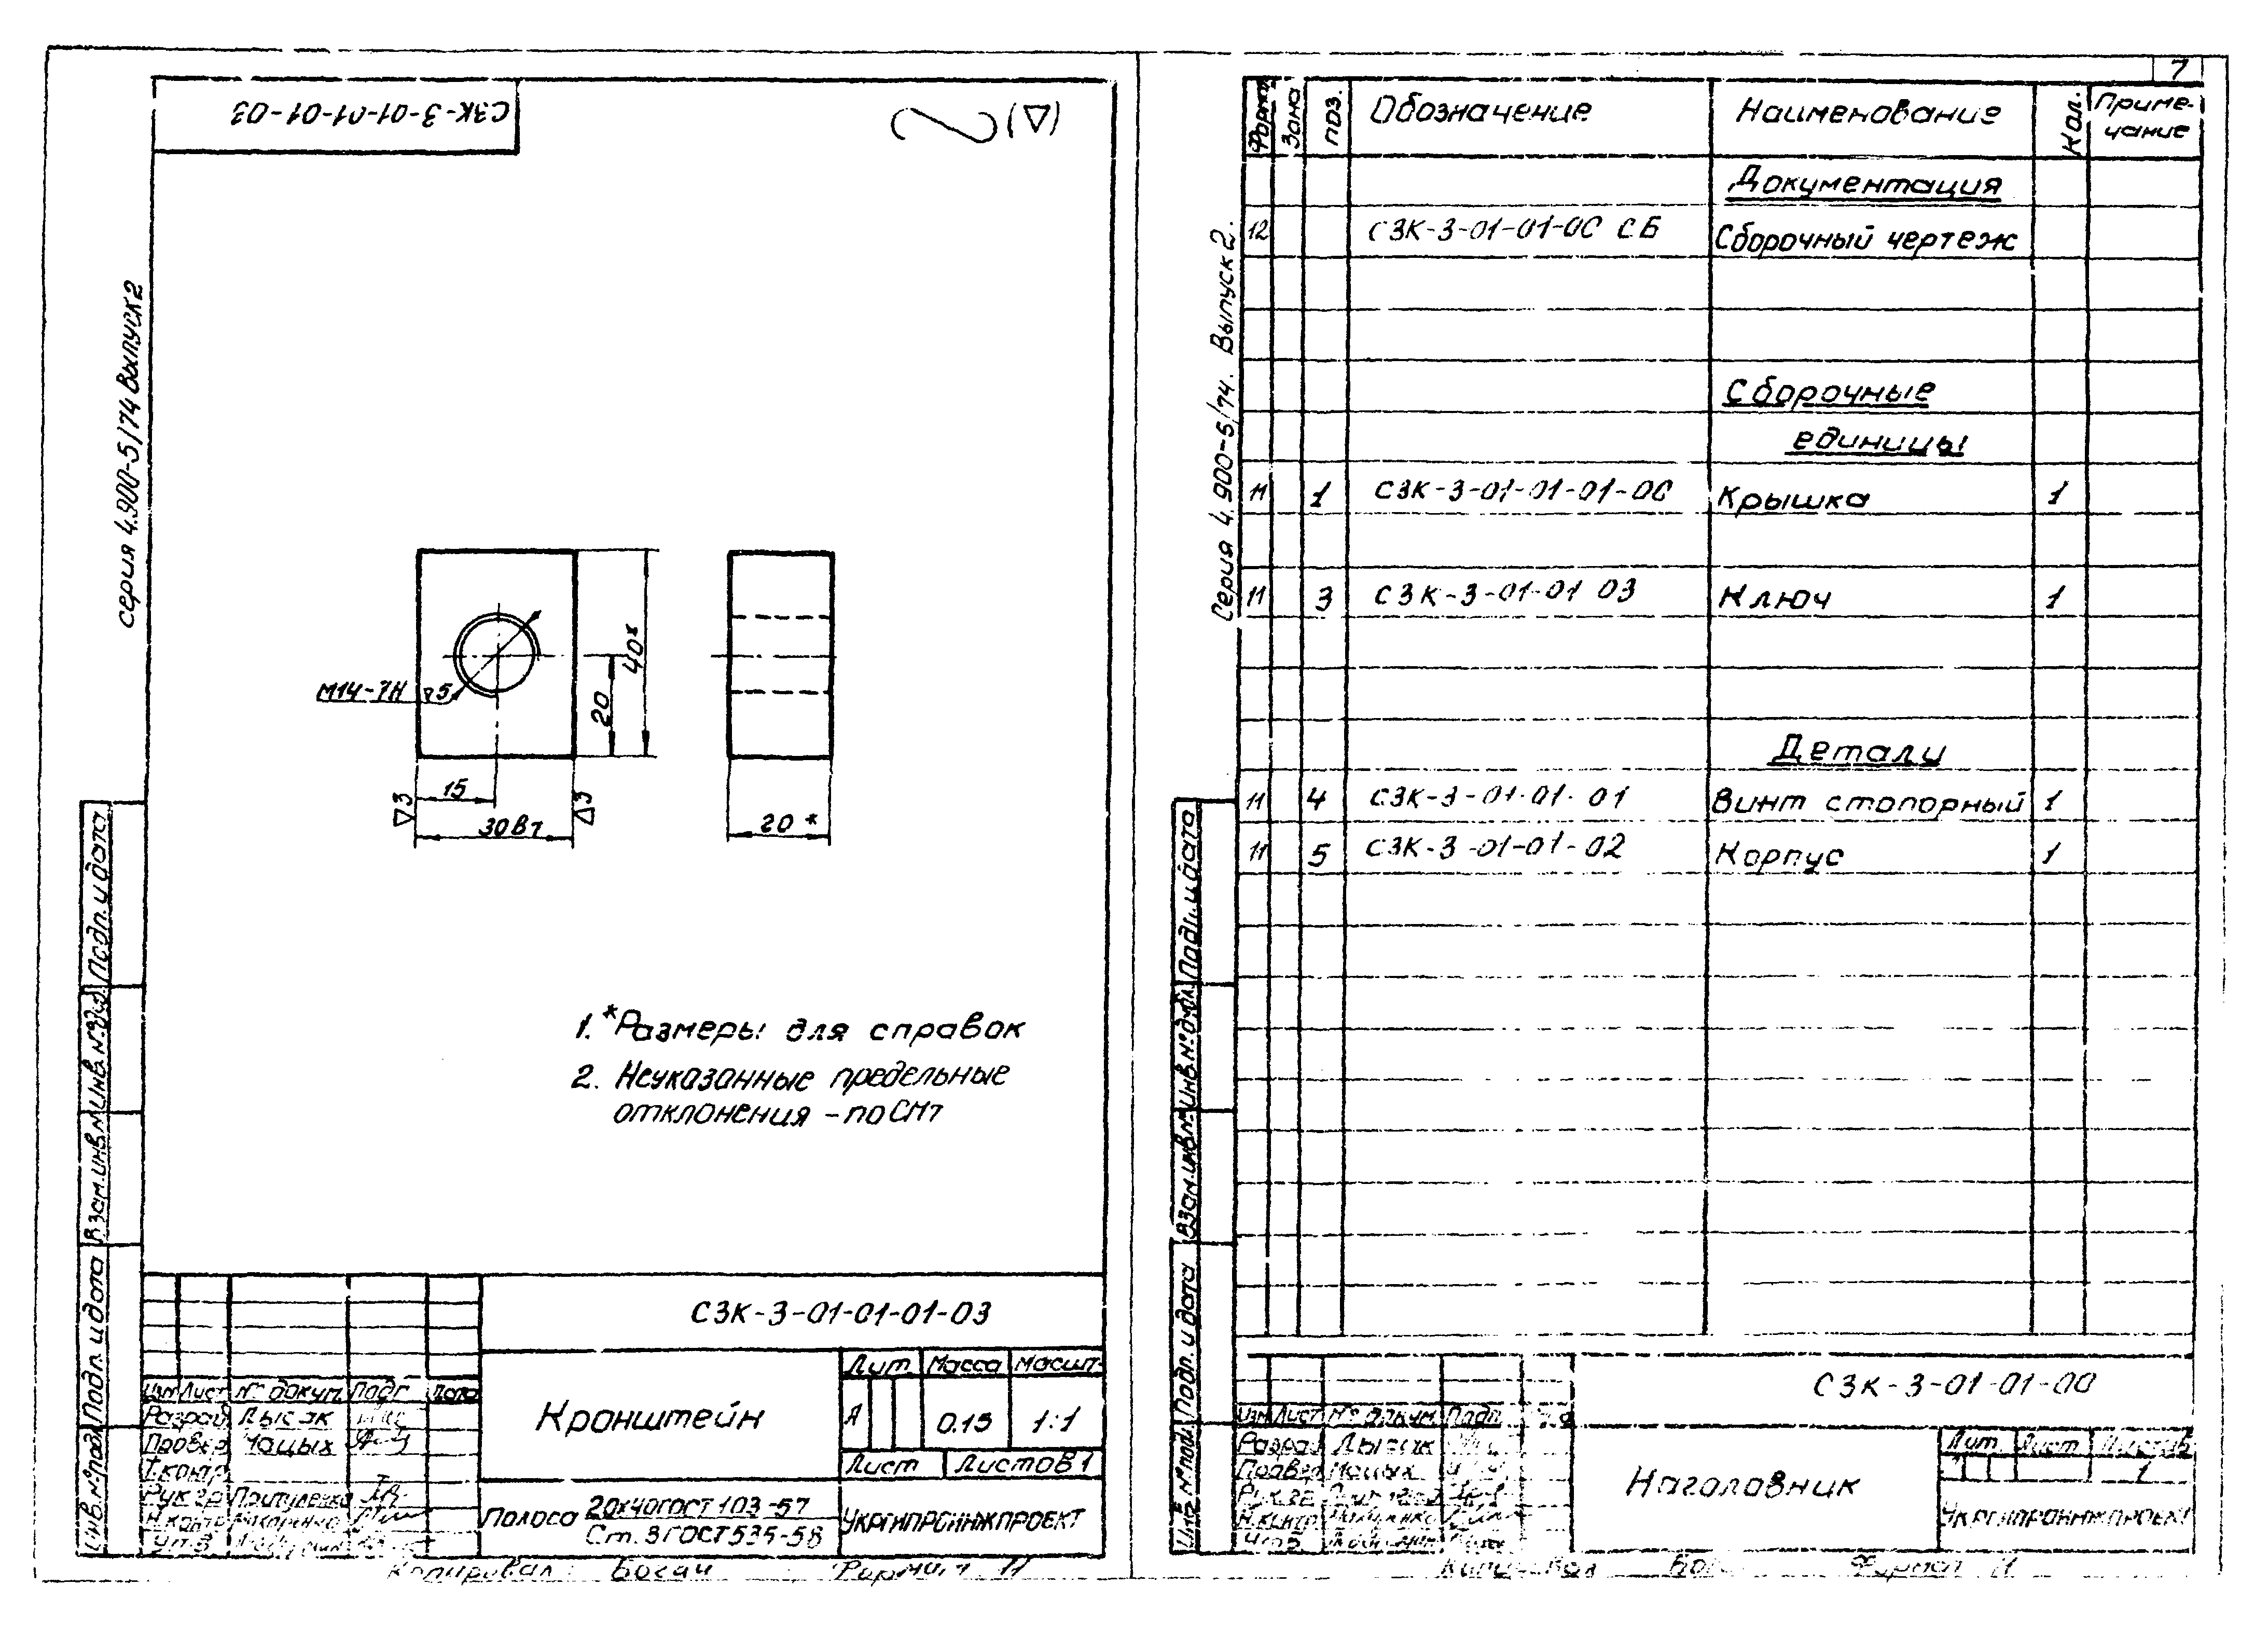 СЗК-3-01-01-01-03
серия 4.900-5/74 Выпуск 2
М14-7Н ▽5
40*
20
15
▽3
30В7
▽3
20*
1. *Размеры для справок
2. Неуказанные предельные
отклонения - по СМ7
Подп. и дата
Взам. инв. №
Подп. и дата
Инв. № подл.
СЗК-3-01-01-01-03
Кронштейн
Лит. Масса Масшт.
А 0.15 1:1
Лист Листов 1
Изм Лист № докум. Подп Дата
Разраб. Лысак
Провер Чацых
Т.контр.
Рук гр Притуленко
Н.контр
Утв
Полоса 20х40 ГОСТ 103-57
Ст. 3 ГОСТ 535-58
УКРГИПРОИНЖПРОЕКТ
Копировал Богач Формат 11
7
Серия 4.900-5/74. Выпуск 2.
Формат Зона Поз. Обозначение Наименование Кол. Приме-
чание
Документация
12 СЗК-3-01-01-00 СБ Сборочный чертеж
Сборочные
единицы
11 1 СЗК-3-01-01-01-00 Крышка 1
11 3 СЗК-3-01-01 03 Ключ 1
Детали
11 4 СЗК-3-01-01-01 Винт стопорный 1
11 5 СЗК-3-01-01-02 Корпус 1
Подп. и дата
Взам. инв. №
Инв. № дубл.
Подп. и дата
Инв. № подл.
СЗК-3-01-01-00
Изм Лист № докум. Подп.
Разраб Лысак
Провер
Рук.гр
Н.контр
Утв
Наголовник
Лит. Лист Листов
1
УКРГИПРОИНЖПРОЕКТ
Копировал Формат 11